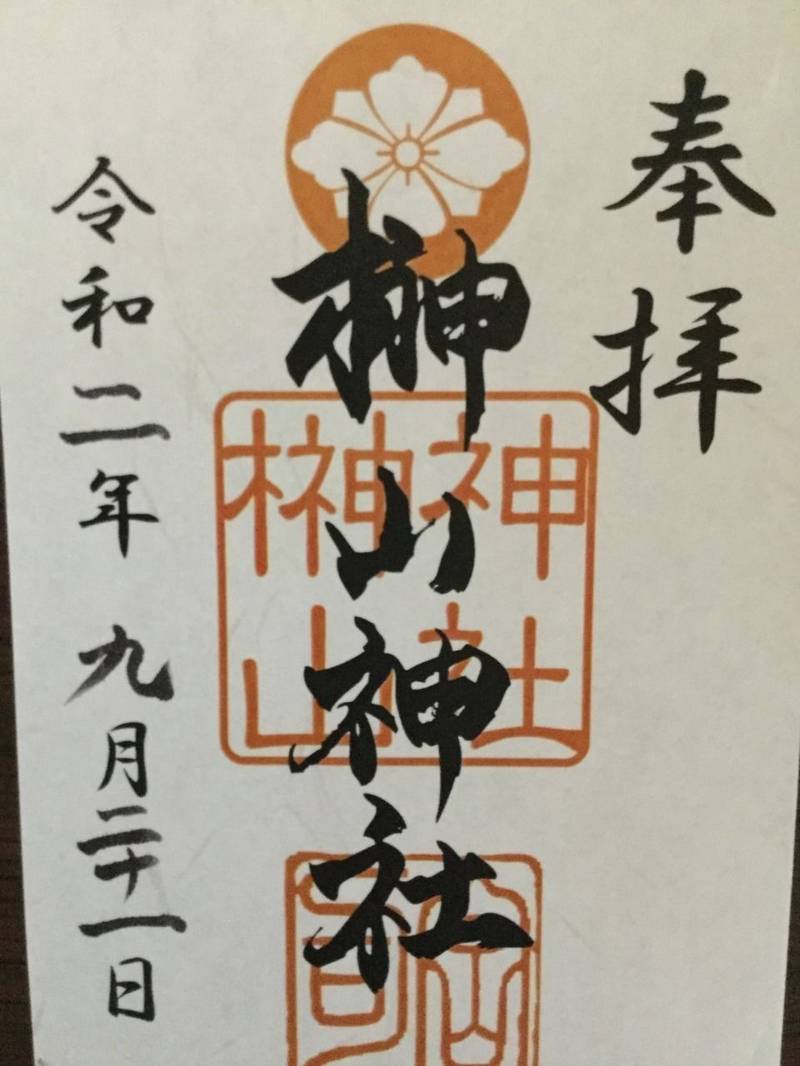 奉拝
榊山神社
神社
榊山
令和二年 九月二十一日